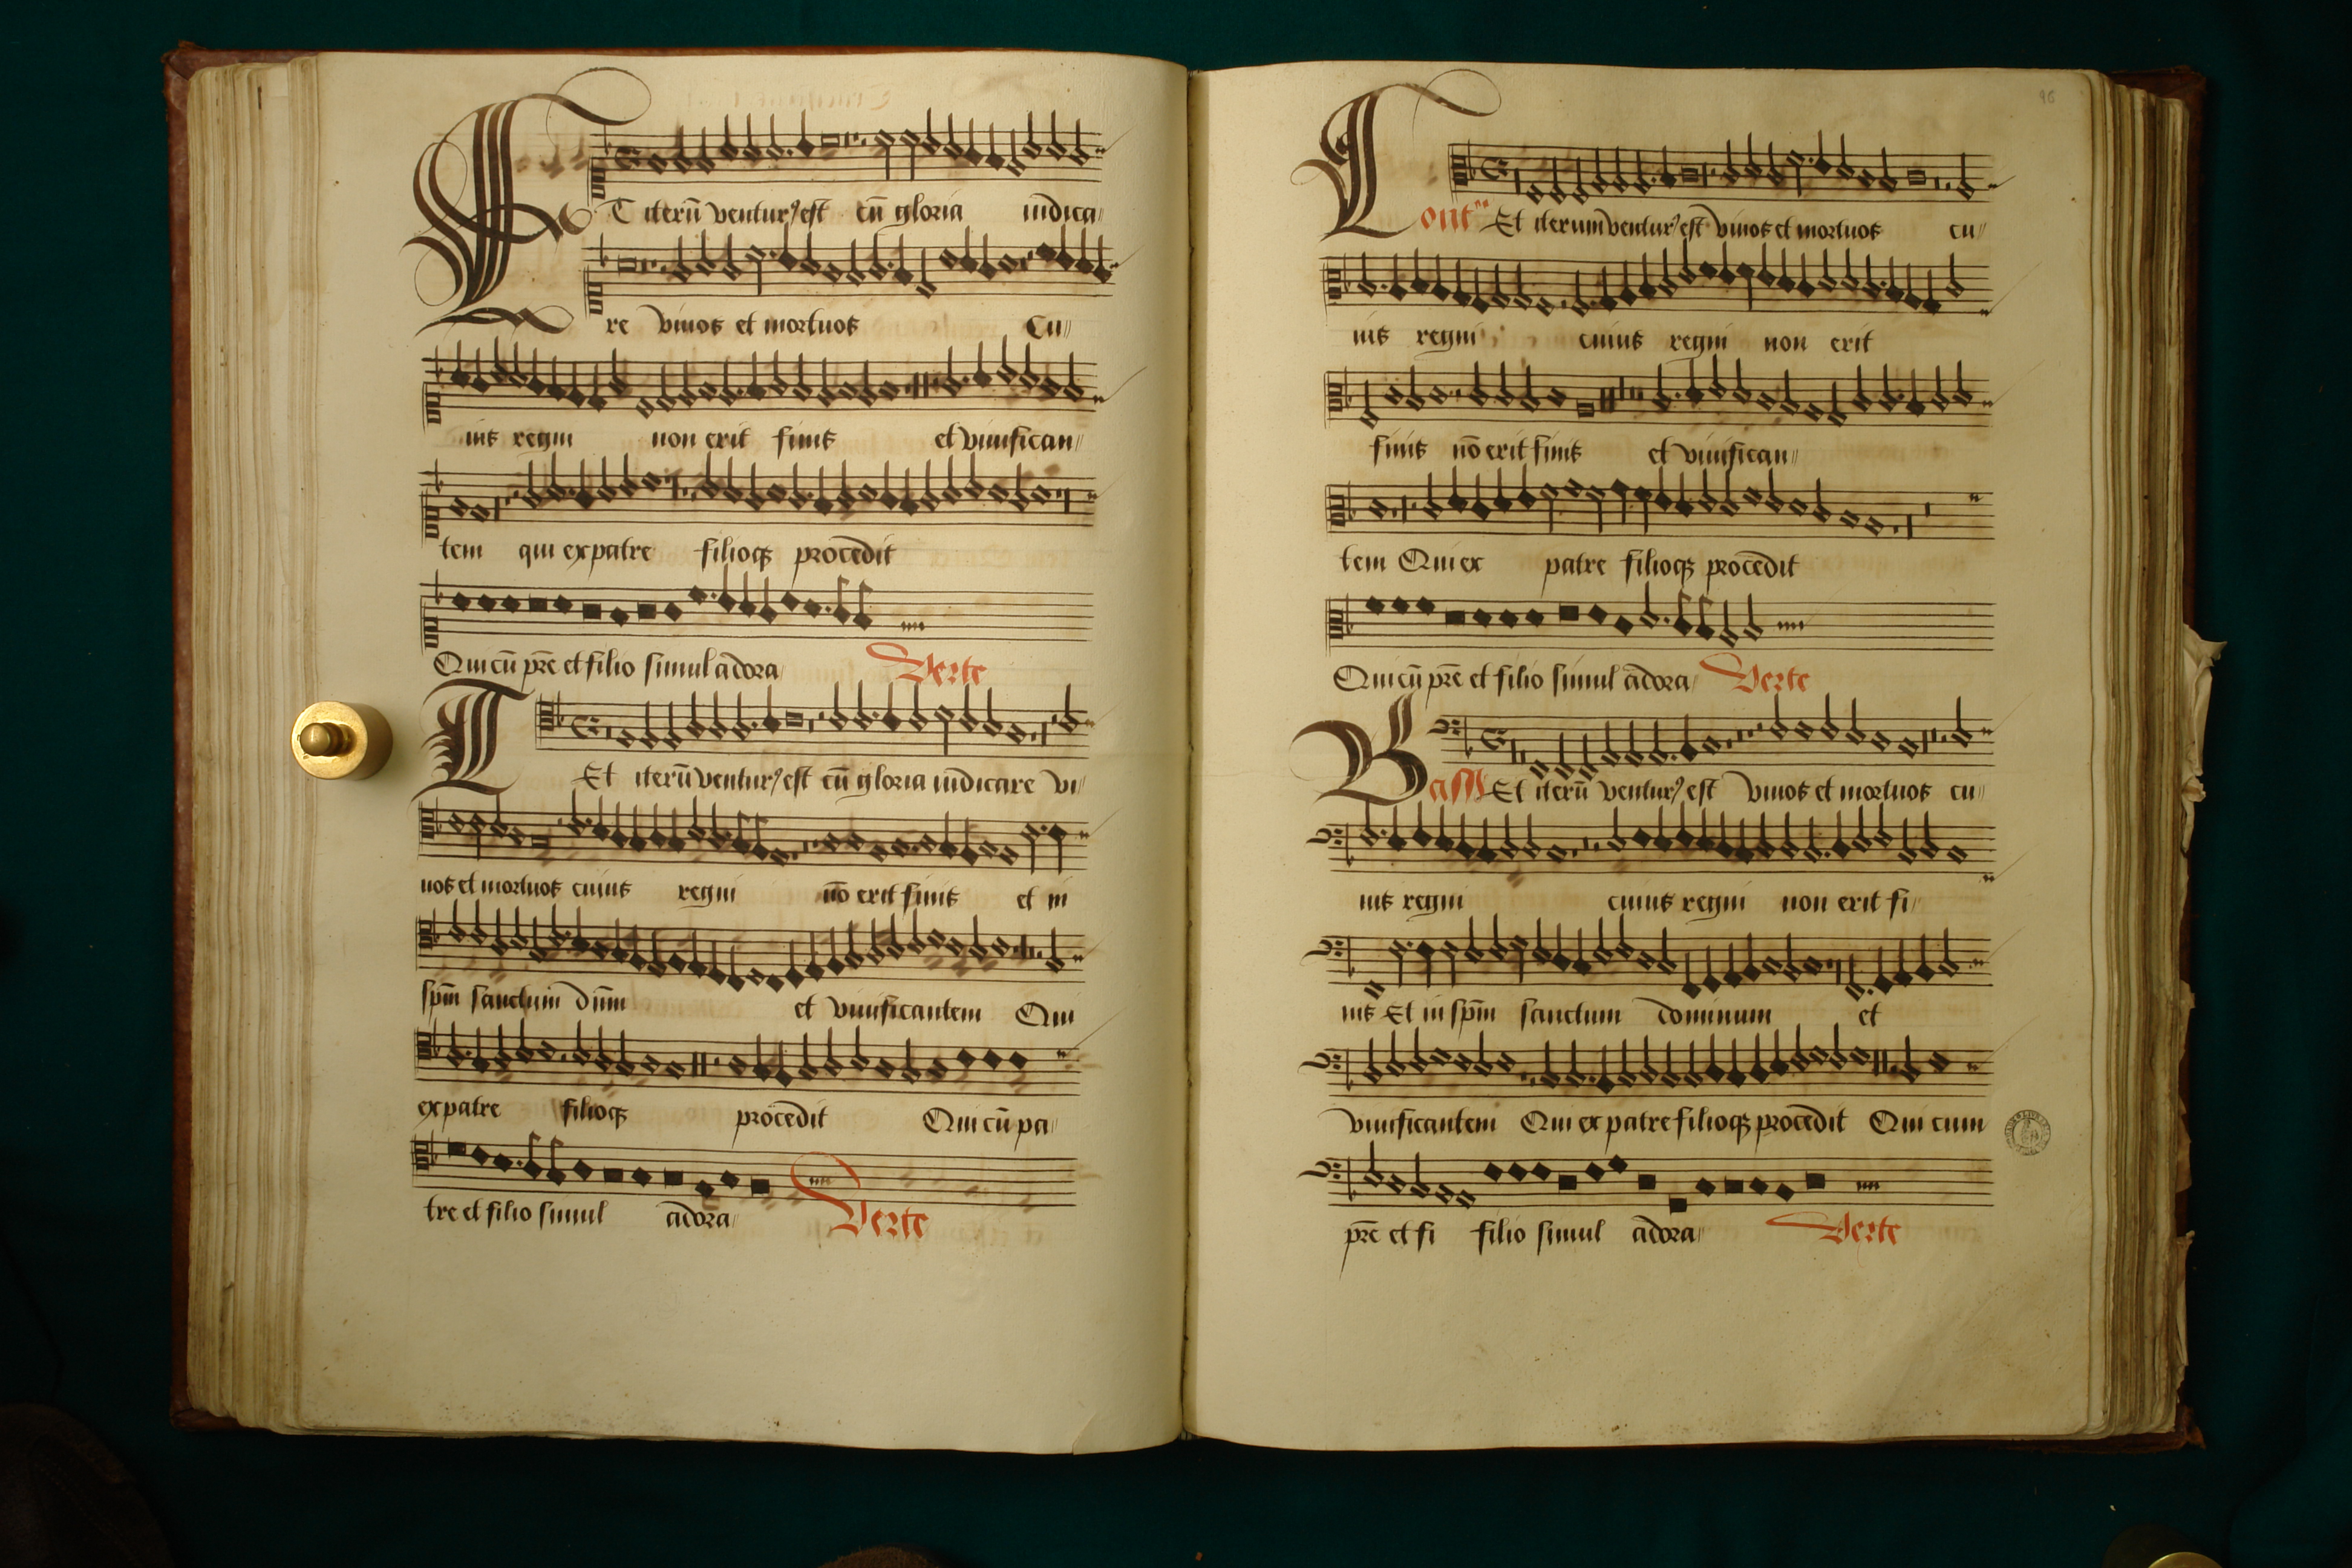 ET iterū ventur9 est cū gloria iudica
re viuos et mortuos Cu
ius regni non erit finis et viuifican
tem qui ex patre filioqꝫ procedit
Qui cū pr̄e et filio simul adora
Verte
T Et iterū ventur9 est cū gloria iudicare vi
uos et mortuos cuius regni nō erit finis et in
spm̄ sanctum dūm et viuificantem Qui
ex patre filioqꝫ procedit Qui cū pa
tre et filio simul adora
Verte
96
Cont Et iterum ventur9 est viuos et mortuos cu
ius regni cuius regni non erit
finis nō erit finis et viuifican
tem Qui ex patre filioqꝫ procedit
Qui cū pr̄e et filio simul adora Verte
Bass Et iterū ventur9 est viuos et mortuos cu
ius regni cuius regni non erit fi
nis Et in spm̄ sanctum dominum et
viuificantem Qui ex patre filioqꝫ procedit Qui cum
pr̄e et fi filio simul adora Verte